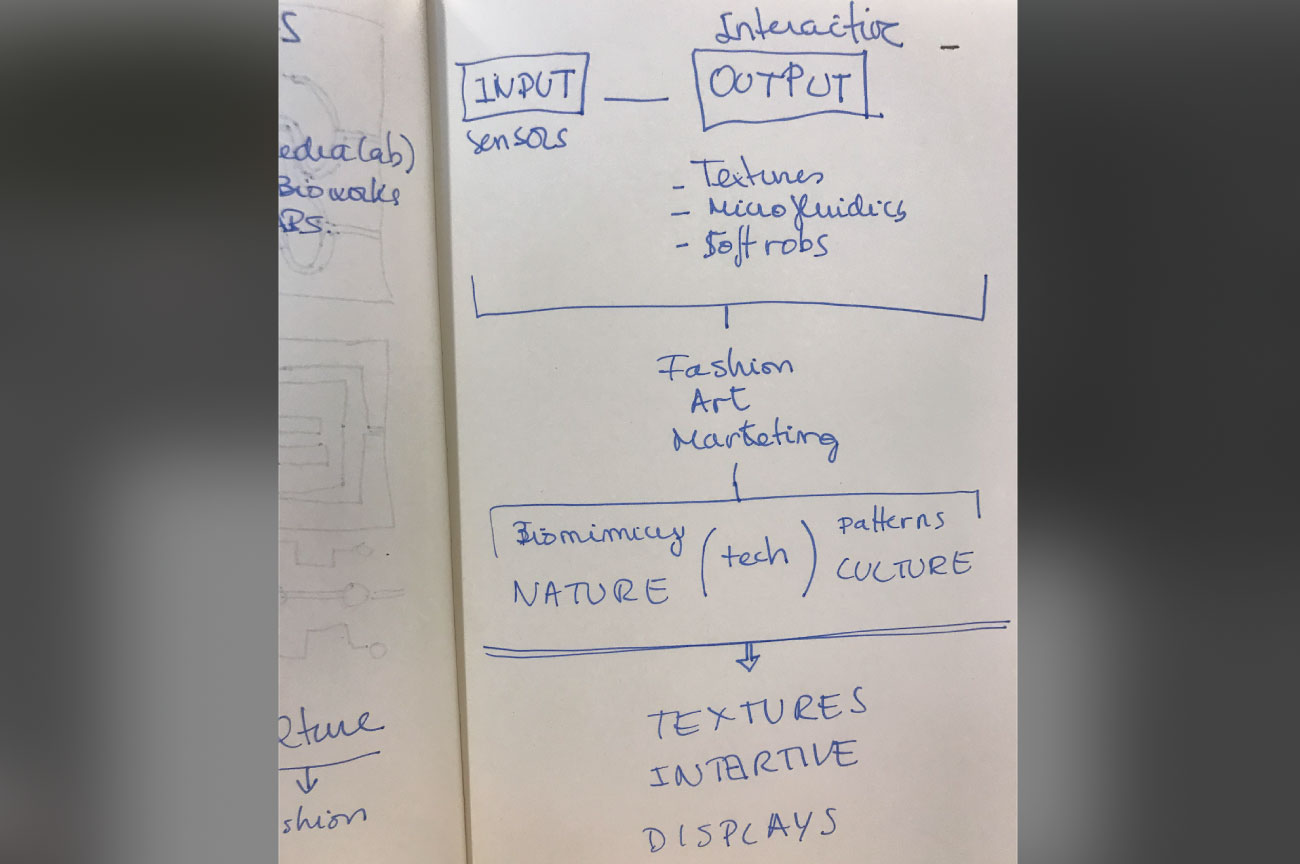 S
edialab)
Bioworks
rture
shion
Interactive
INPUT — OUTPUT
sensors
- Textures
- Microfluidics
- Soft robs
Fashion
Art
Marketing
Biomimicry (tech) patterns
NATURE CULTURE
TEXTURES
INTERTIVE
DISPLAYS